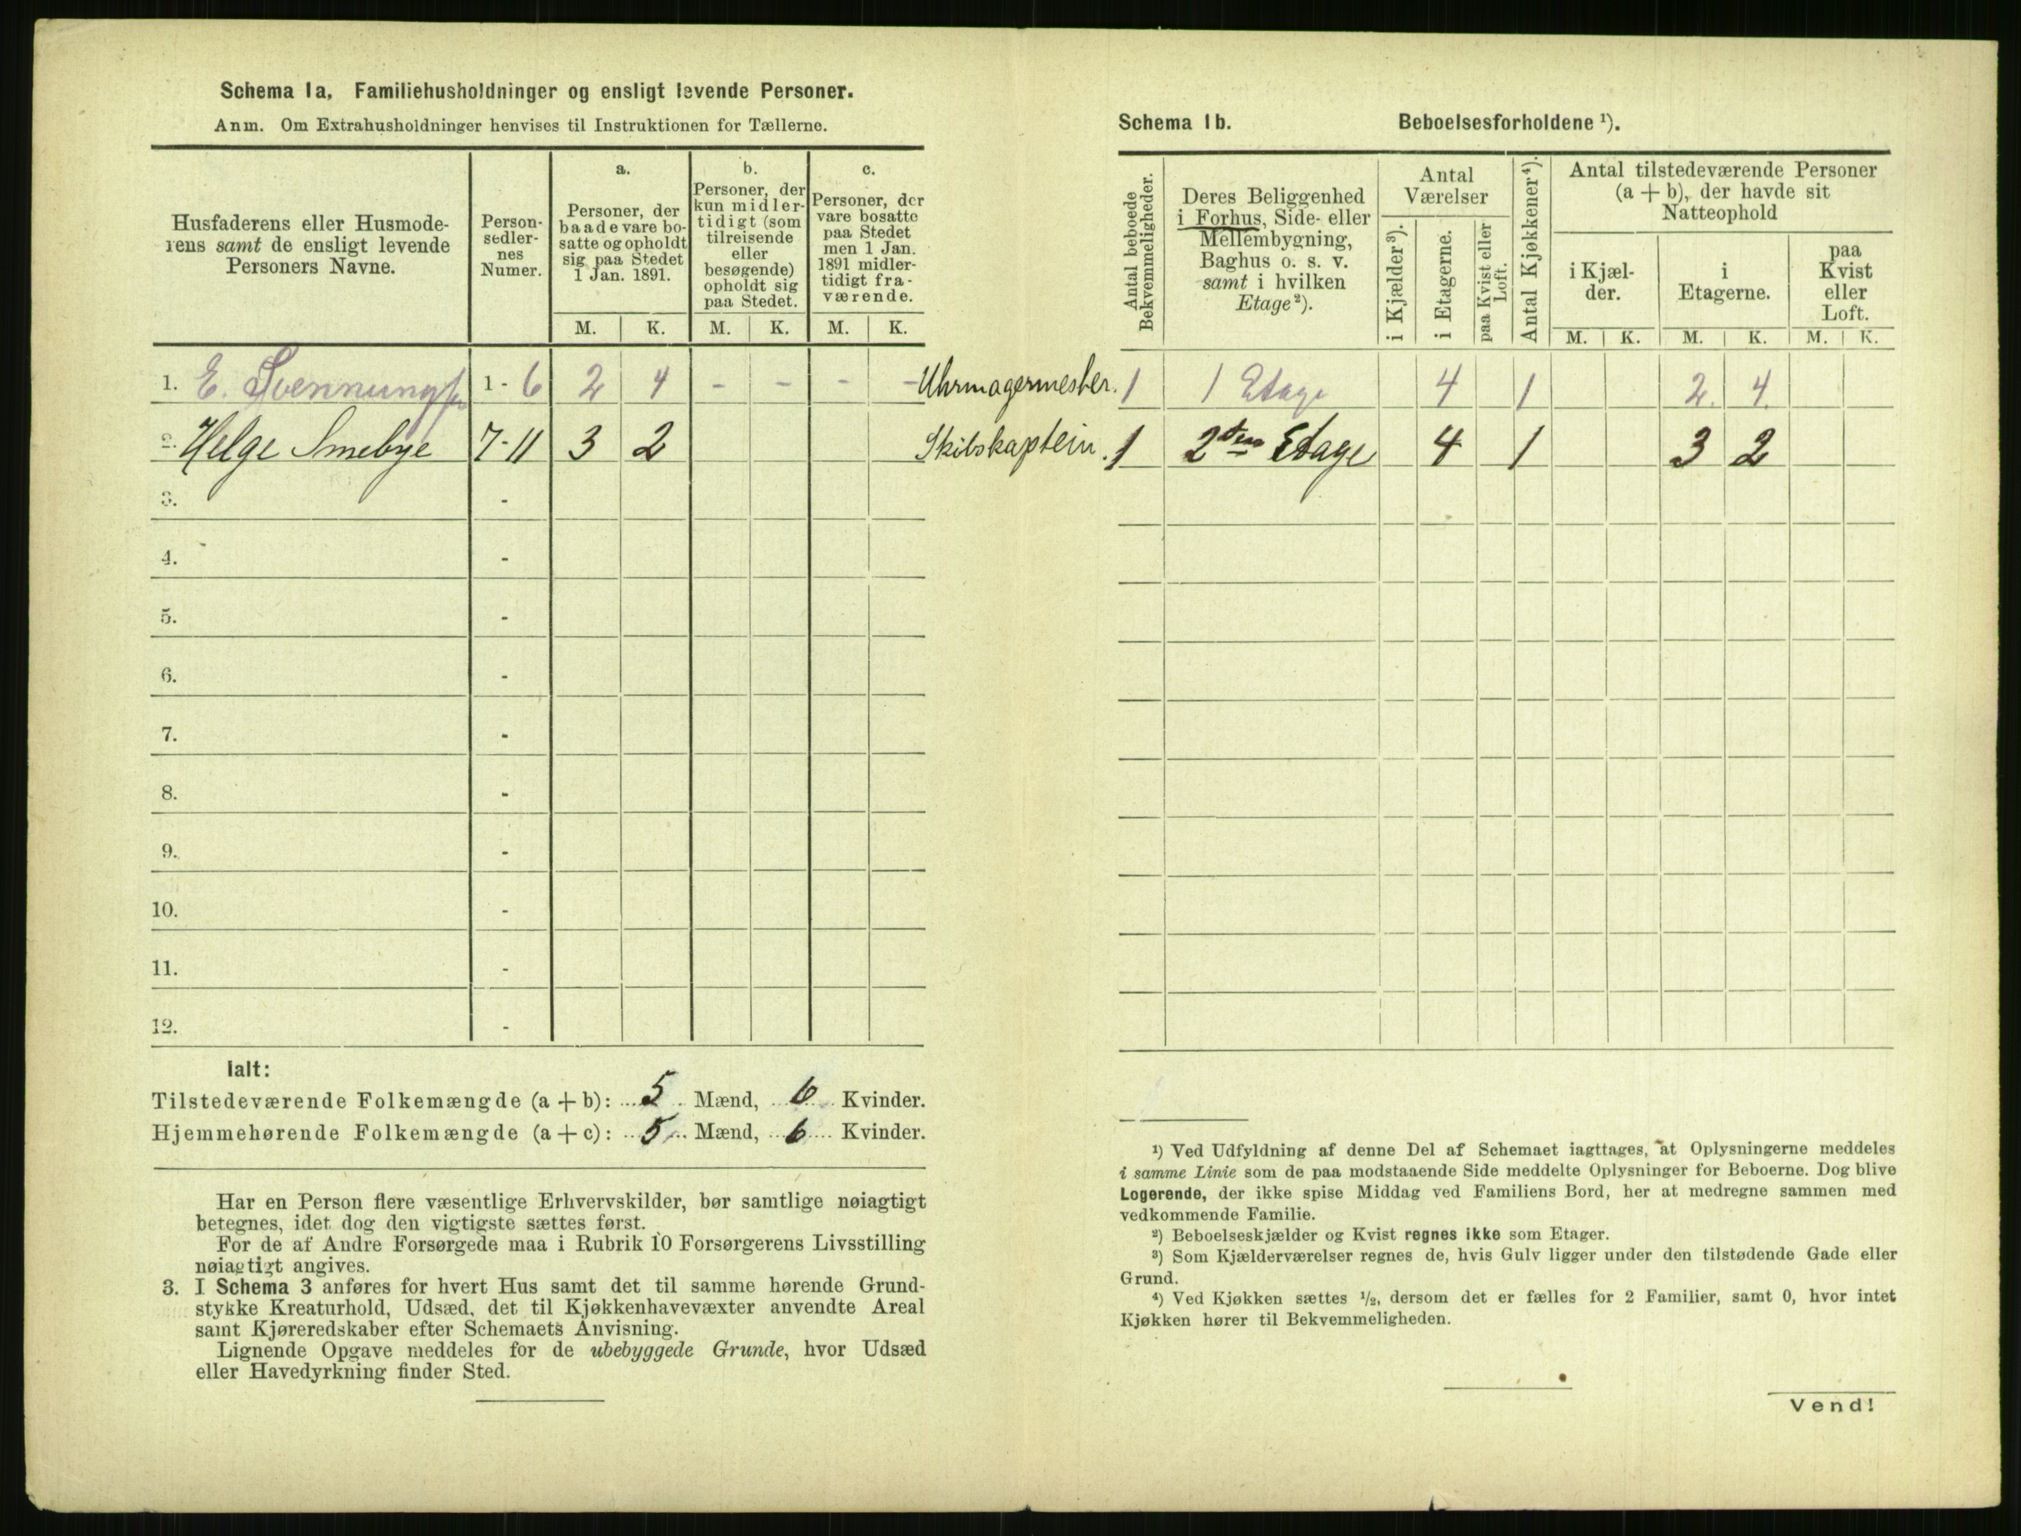 Schema 1a. Familiehusholdninger og ensligt levende Personer.
Anm. Om Extrahusholdninger henvises til Instruktionen for Tællerne.
Husfaderens eller Husmode-
rens samt de ensligt levende
Personers Navne.
Person-
sedler-
nes
Numer.
a.
Personer, der
baade vare bo-
satte og opholdt
sig paa Stedet
1 Jan. 1891.
b.
Personer, der
kun midler-
tidigt (som
tilreisende
eller
besøgende)
opholdt sig
paa Stedet.
c.
Personer, der
vare bosatte
paa Stedet
men 1 Jan.
1891 midler-
tidigt fra-
værende.
M. K. M. K. M. K.
1. E. Svennungsen 1 - 6 2 4 - - - - Uhrmagermester.
2. Helge Smebye 7 - 11 3 2 Skibskaptein.
3. -
4. -
5. -
6. -
7. -
8. -
9. -
10. -
11. -
12. -
Ialt:
Tilstedeværende Folkemængde (a + b): 5 Mænd, 6 Kvinder.
Hjemmehørende Folkemængde (a + c): 5 Mænd, 6 Kvinder.
Har en Person flere væsentlige Erhvervskilder, bør samtlige nøiagtigt
betegnes, idet dog den vigtigste sættes først.
For de af Andre Forsørgede maa i Rubrik 10 Forsørgerens Livsstilling
nøiagtigt angives.
3. I Schema 3 anføres for hvert Hus samt det til samme hørende Grund-
stykke Kreaturhold, Udsæd, det til Kjøkkenhavevæxter anvendte Areal
samt Kjøreredskaber efter Schemaets Anvisning.
Lignende Opgave meddeles for de ubebyggede Grunde, hvor Udsæd
eller Havedyrkning finder Sted.
Schema 1b. Beboelsesforholdene ¹).
Antal beboede
Bekvemmeligheder.
Deres Beliggenhed
i Forhus, Side- eller
Mellembygning,
Baghus o. s. v.
samt i hvilken
Etage²).
Antal
Værelser
i Kjælder³).
i Etagerne.
paa Kvist eller
Loft.
Antal Kjøkkener⁴).
Antal tilstedeværende Personer
(a + b), der havde sit
Natteophold
i Kjæl-
der.
i
Etagerne.
paa
Kvist
eller
Loft.
M. K. M. K. M. K.
1 1 Etage 4 1 2 4
1 2den Etage 4 1 3 2
¹) Ved Udfyldning af denne Del af Schemaet iagttages, at Oplysningerne meddeles
i samme Linie som de paa modstaaende Side meddelte Oplysninger for Beboerne. Dog blive
Logerende, der ikke spise Middag ved Familiens Bord, her at medregne sammen med
vedkommende Familie.
²) Beboelseskjælder og Kvist regnes ikke som Etager.
³) Som Kjælderværelser regnes de, hvis Gulv ligger under den tilstødende Gade eller
Grund.
⁴) Ved Kjøkken sættes ½, dersom det er fælles for 2 Familier, samt 0, hvor intet
Kjøkken hører til Bekvemmeligheden.
Vend!